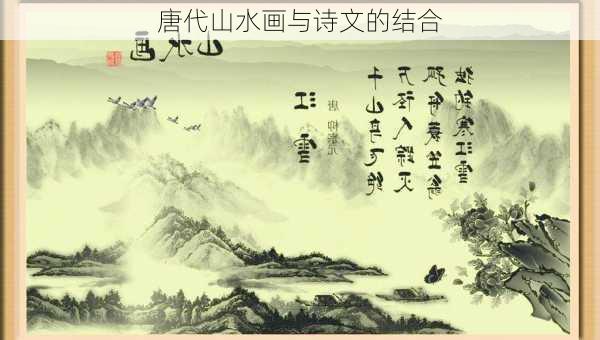 唐代山水画与诗文的结合
山水画
江雪
唐 柳宗元
千山鸟飞绝
万径人踪灭
孤舟蓑笠翁
独钓寒江雪